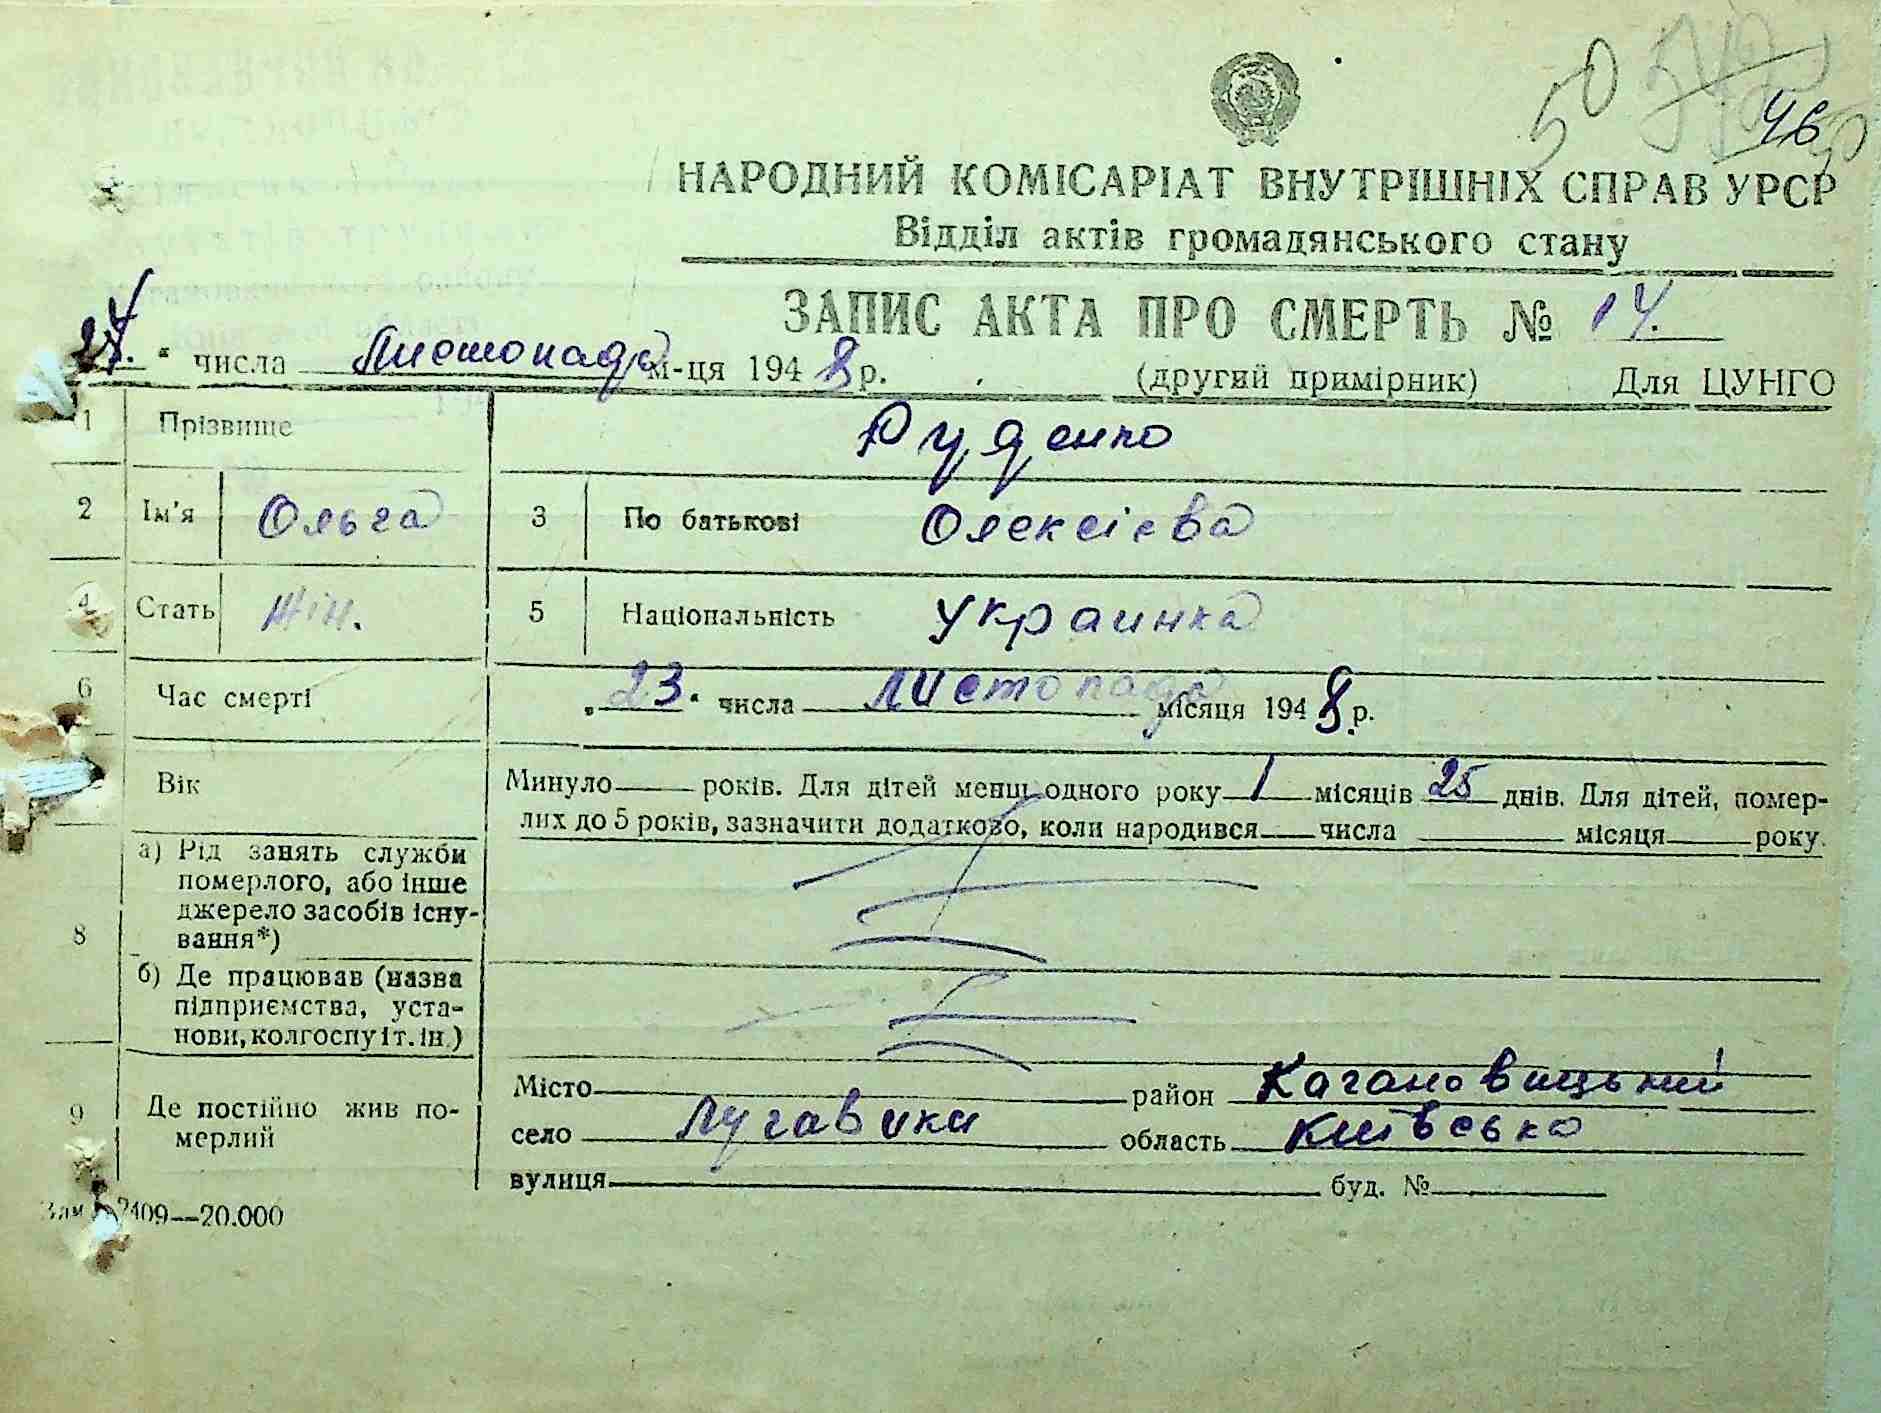 50
46
НАРОДНИЙ КОМІСАРІАТ ВНУТРІШНІХ СПРАВ УРСР
Відділ актів громадянського стану
ЗАПИС АКТА ПРО СМЕРТЬ № 14.
24. “ числа Листопада м-ця 1948 р. (другий примірник) Для ЦУНГО
1 Прізвище Руденко
2 Ім'я Ольга 3 По батькові Олексієва
4 Стать жін. 5 Національність Украинка
6 Час смерті „23.“ числа Листопада місяця 1948 р.
Вік Минуло років. Для дітей менш одного року 1 місяців 25 днів. Для дітей, помер-
лих до 5 років, зазначити додатково, коли народився числа місяця року.
8 а) Рід занять служби
померлого, або інше
джерело засобів існу-
вання*)
б) Де працював (назва
підприємства, уста-
нови, колгоспу і т. ін.)
9 Де постійно жив по-
мерлий
Місто район Кагановицький
село Лугавики область Київсько
вулиця буд. №
Зам. 2409—20.000